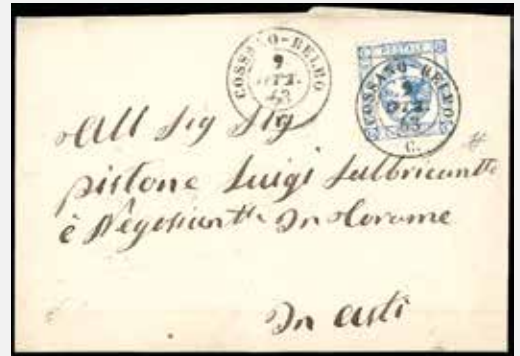 COSSANO-BELBO
9
63
COSSANO-BELBO
9
63
C.
All Sig Sig
pistone Luigi Fabbricantte
è Negosiantte In Corame
In Asti